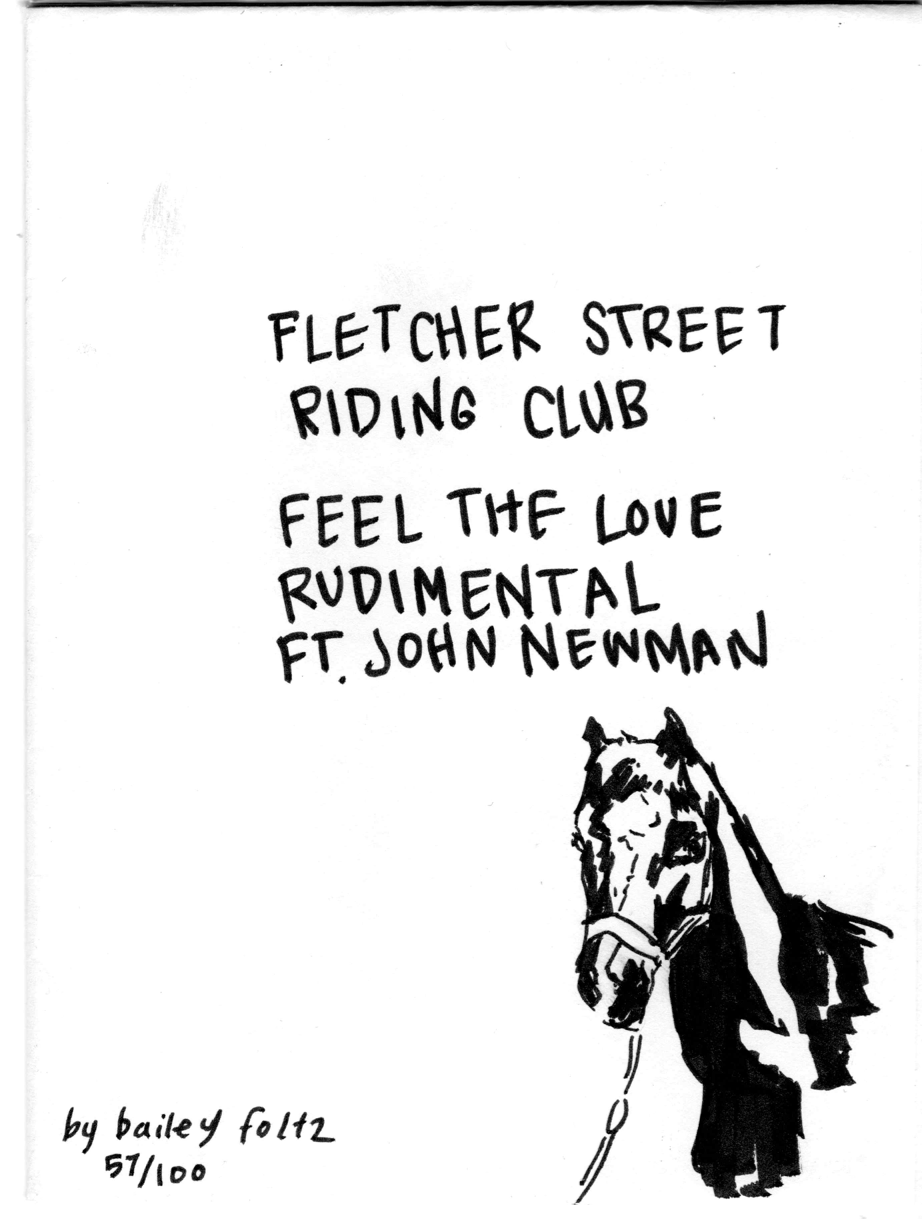 FLETCHER STREET
RIDING CLUB
FEEL THE LOVE
RUDIMENTAL
FT. JOHN NEWMAN
by bailey foltz
57/100